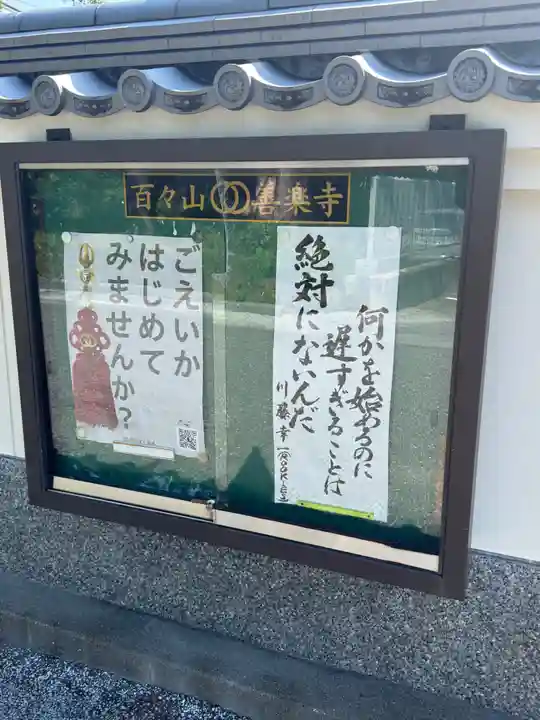 百々山 善楽寺
何かを始めるのに
遅すぎることは
絶対にないんだ
川藤幸一
ROOKIES
ごえいか
はじめて
みませんか？